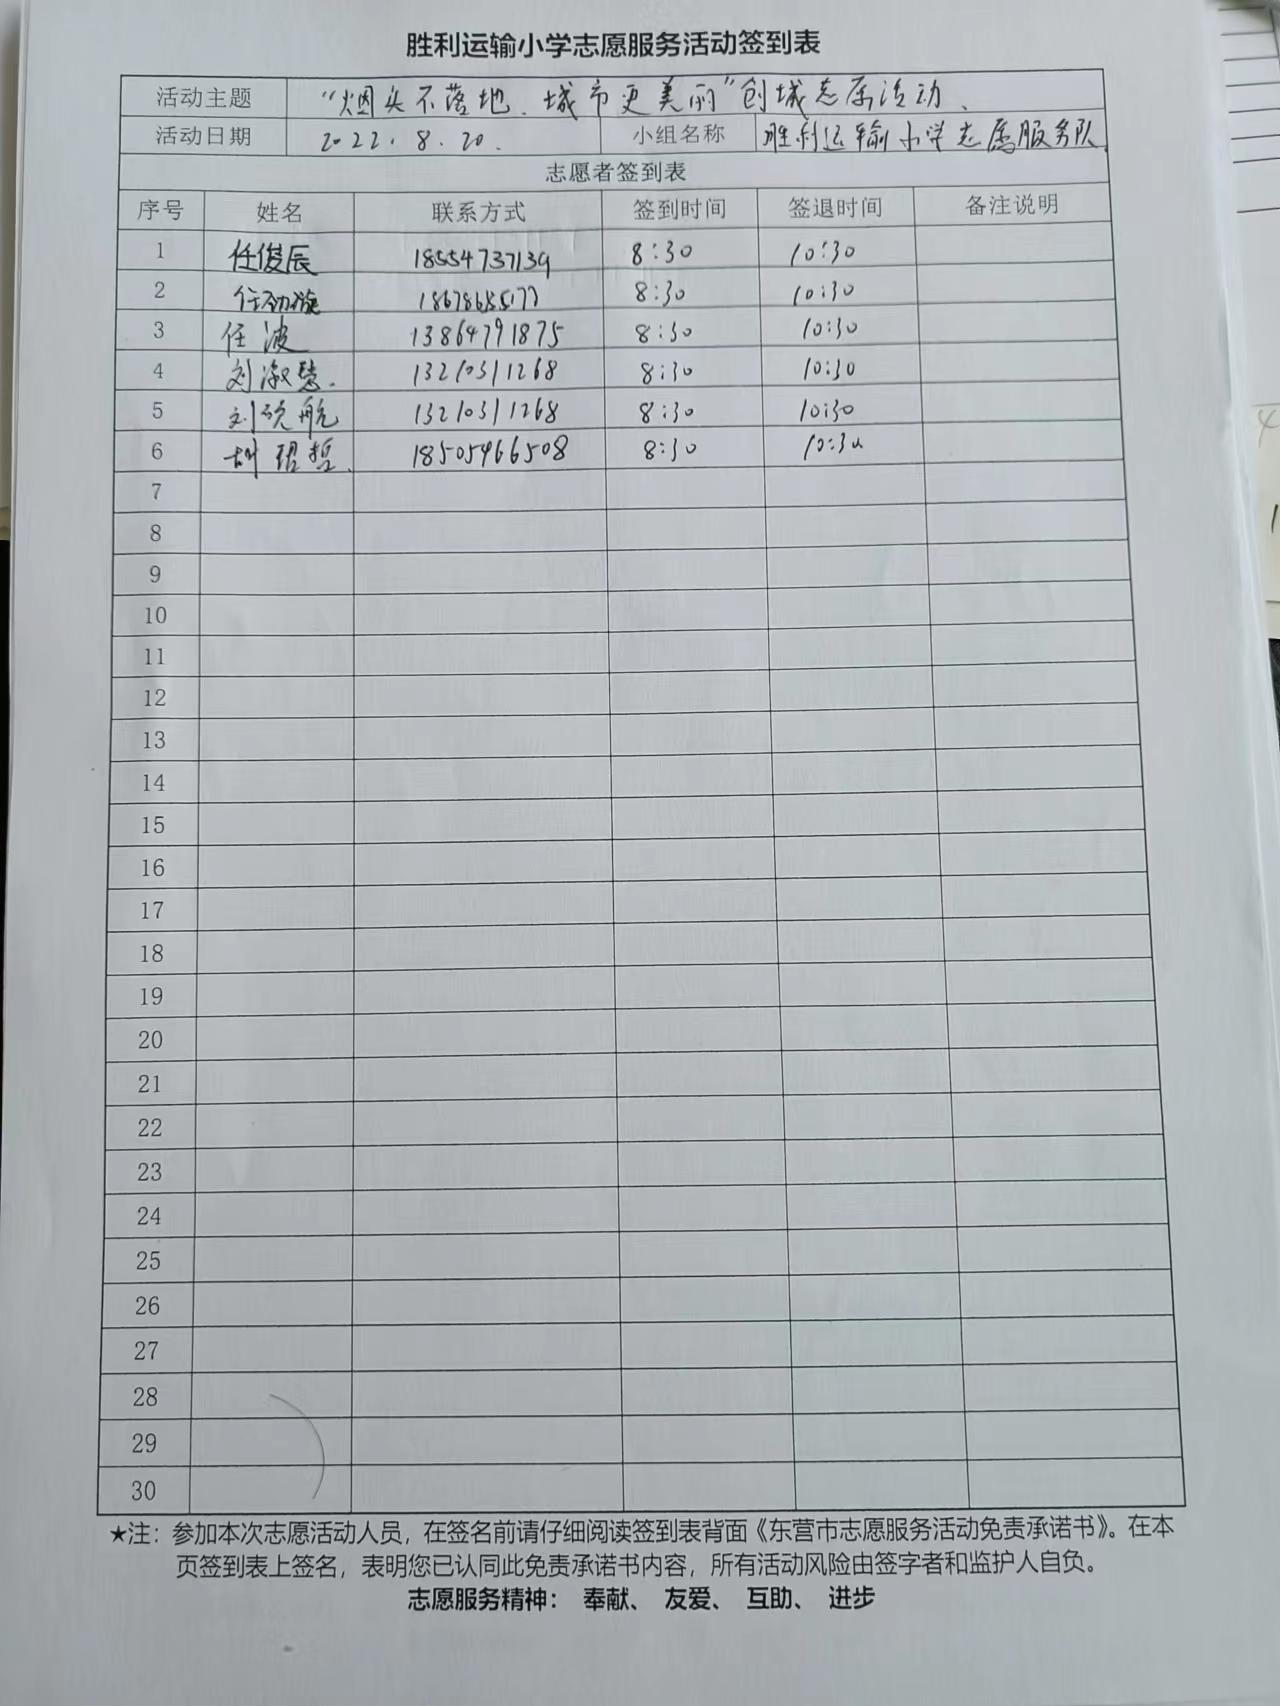 胜利运输小学志愿服务活动签到表
活动主题 “烟头不落地、城市更美丽”创城志愿活动、
活动日期 2022.8.20. 小组名称 胜利运输小学志愿服务队
志愿者签到表
序号 姓名 联系方式 签到时间 签退时间 备注说明
1 任俊辰 18554737139 8:30 10:30
2 8:30 10:30
3 任波 13864791875 8:30 10:30
4 刘淑慧. 13210311268 8:30 10:30
5 刘航 13210311268 8:30 10:30
6 胡 哲. 18505466508 8:30 10:30
7
8
9
10
11
12
13
14
15
16
17
18
19
20
21
22
23
24
25
26
27
28
29
30
★注：参加本次志愿活动人员，在签名前请仔细阅读签到表背面《东营市志愿服务活动免责承诺书》。在本
页签到表上签名，表明您已认同此免责承诺书内容，所有活动风险由签字者和监护人自负。
志愿服务精神： 奉献、 友爱、 互助、 进步